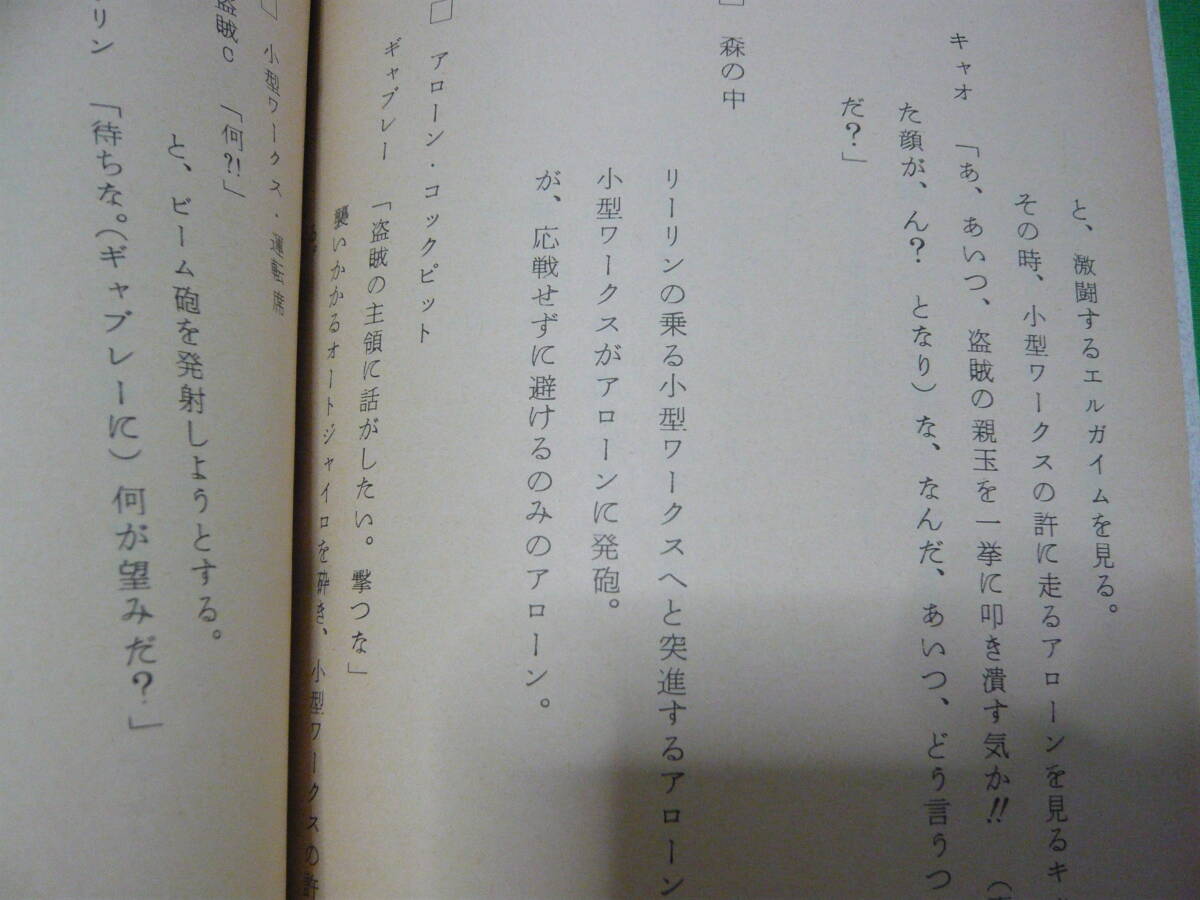 と、激闘するエルガイムを見る。
その時、小型ワークスの許に走るアローンを見るキ
キャオ 「あ、あいつ、盗賊の親玉を一挙に叩き潰す気か!! (
た顔が、ん? となり)な、なんだ、あいつ、どう言うつ
だ?」
□ 森の中
リーリンの乗る小型ワークスへと突進するアローン
小型ワークスがアローンに発砲。
が、応戦せずに避けるのみのアローン。
□ アローン・コックピット
ギャブレー 「盗賊の主領に話がしたい。撃つな」
襲いかかるオートジャイロを砕き、小型ワークスの許
□ 小型ワークス・運転席
盗賊C 「何?!」
と、ビーム砲を発射しようとする。
リン 「待ちな。(ギャブレーに)何が望みだ?」